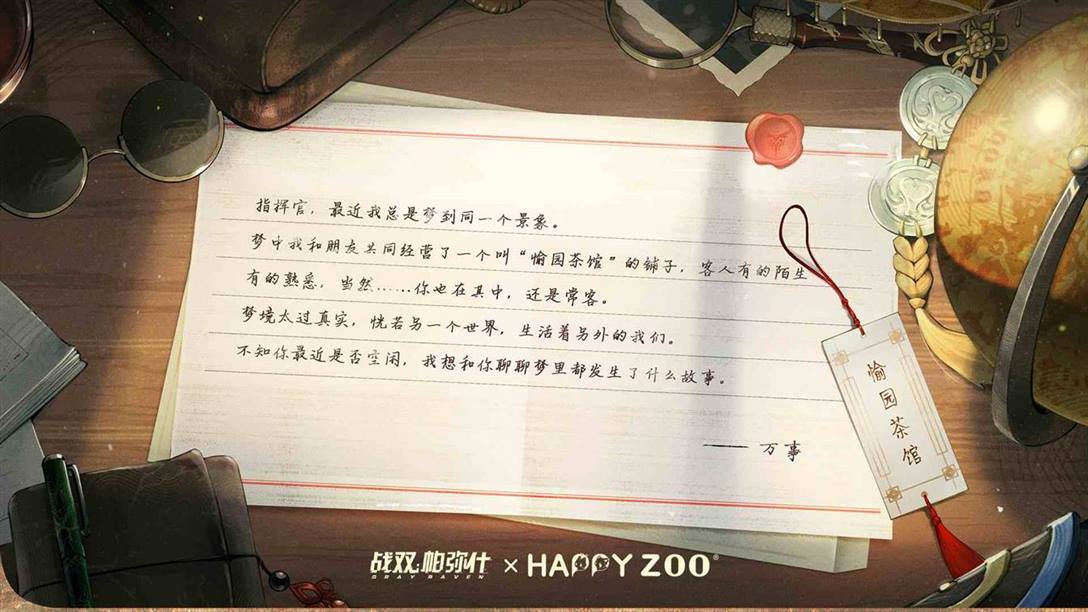 指挥官，最近我总是梦到同一个景象。
梦中我和朋友共同经营了一个叫“愉园茶馆”的铺子，客人有的陌生
有的熟悉，当然……你也在其中，还是常客。
梦境太过真实，恍若另一个世界，生活着另外的我们。
不知你最近是否空闲，我想和你聊聊梦里都发生了什么故事。
—— 万事
愉园茶馆
战双帕弥什 × HAPPY ZOO®
GRAY RAVEN